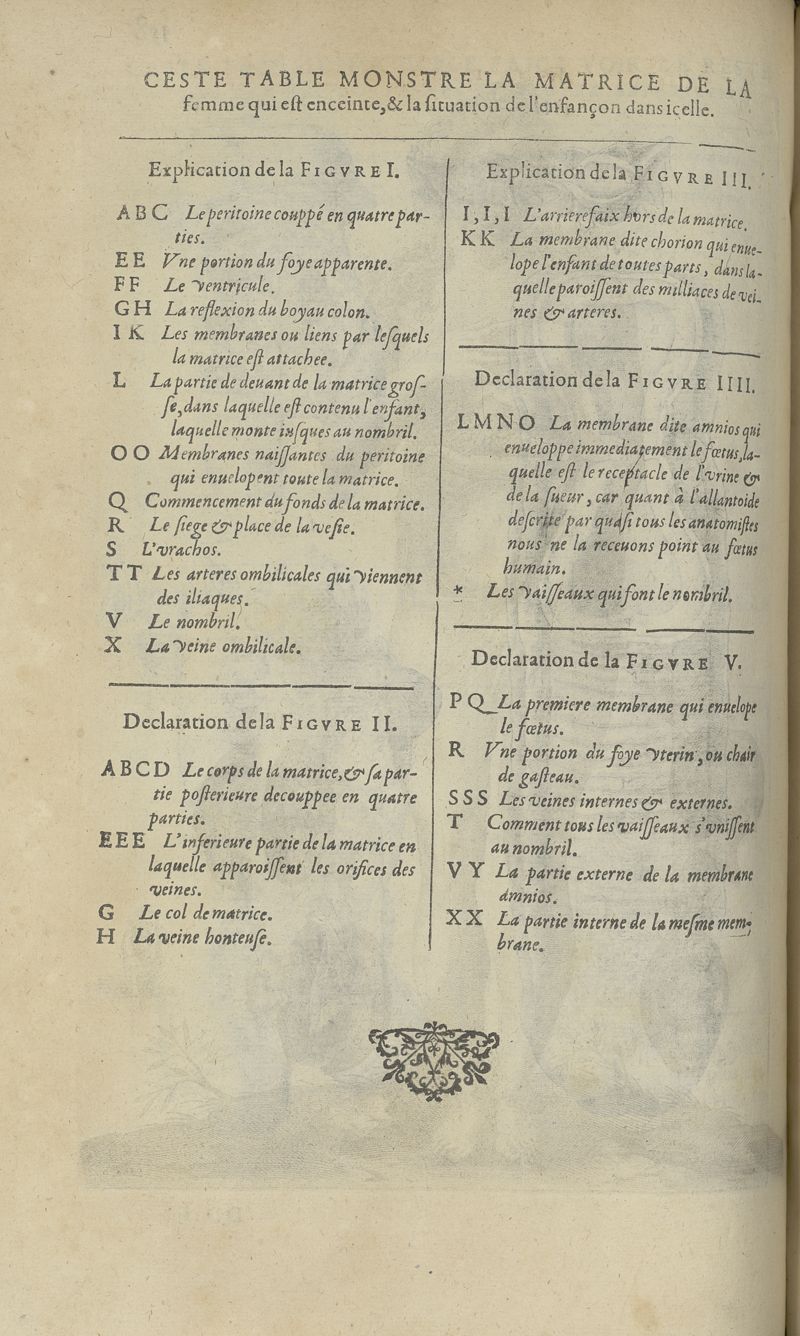 CESTE TABLE MONSTRE LA MATRICE DE LA
femme qui eſt enceinte, & la ſituation de l'enfançon dans icelle.
Explication de la FIGVRE I.
A B C Le peritoine couppé en quatre par-
ties.
E E Vne portion du foye apparente.
F F Le Ventricule.
G H La reflexion du boyau colon.
I K Les membranes ou liens par leſquels
la matrice eſt attachee.
L La partie de deuant de la matrice groſ-
ſe, dans laquelle eſt contenu l'enfant,
laquelle monte iuſques au nombril.
O O Membranes naiſſantes du peritoine
qui enuelopent toute la matrice.
Q Commencement du fonds de la matrice.
R Le ſiege & place de la veſie.
S L'vrachos.
T T Les arteres ombilicales qui Viennent
des iliaques.
V Le nombril.
X La Veine ombilicale.
Declaration de la FIGVRE II.
A B C D Le corps de la matrice, & ſa par-
tie poſterieure decouppee en quatre
parties.
E E E L'inferieure partie de la matrice en
laquelle apparoiſſent les orifices des
veines.
G Le col de matrice.
H La veine honteuſe.
Explication de la FIGVRE III.
I, I, I L'arrierefaix hors de la matrice.
K K La membrane dite chorion qui enue-
lope l'enfant de toutes parts, dans la-
quelle paroiſſent des milliaces de vei-
nes & arteres.
Declaration de la FIGVRE IIII.
L M N O La membrane dite amnios qui
enueloppe immediatement le fœtus, la-
quelle eſt le receptacle de l'vrine &
de la ſueur, car quant à l'allantoide
deſcrite par quaſi tous les anatomiſtes
nous ne la receuons point au fœtus
humain.
* Les Vaiſſeaux qui font le nombril.
Declaration de la FIGVRE V.
P Q La premiere membrane qui enuelope
le fœtus.
R Vne portion du foye Vterin, ou chair
de gaſteau.
S S S Les veines internes & externes.
T Comment tous les vaiſſeaux s'vniſſent
au nombril.
V Y La partie externe de la membrane
amnios.
X X La partie interne de la meſme mem-
brane.